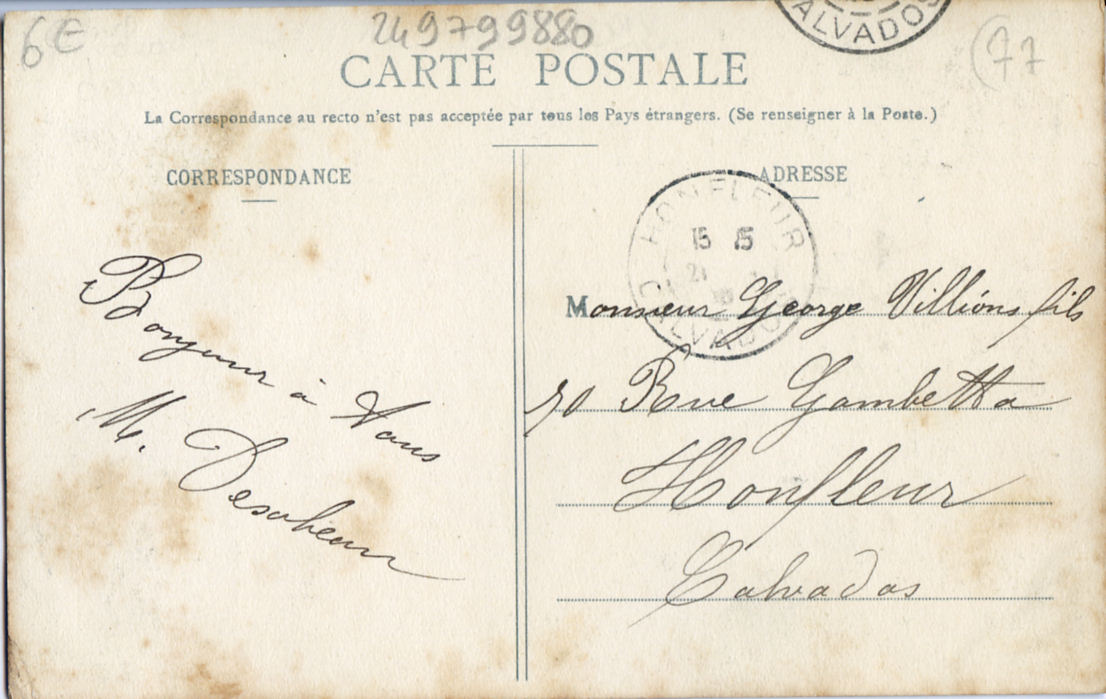 6€
249799880
ALVADOS
(77
CARTE POSTALE
La Correspondance au recto n'est pas acceptée par tous les Pays étrangers. (Se renseigner à la Poste.)
CORRESPONDANCE
Bonjour à Vous
M.
ADRESSE
HONFLEUR
15 15
CALVADOS
Monsieur George Villions fils
Rue Gambetta
Honfleur
Calvados